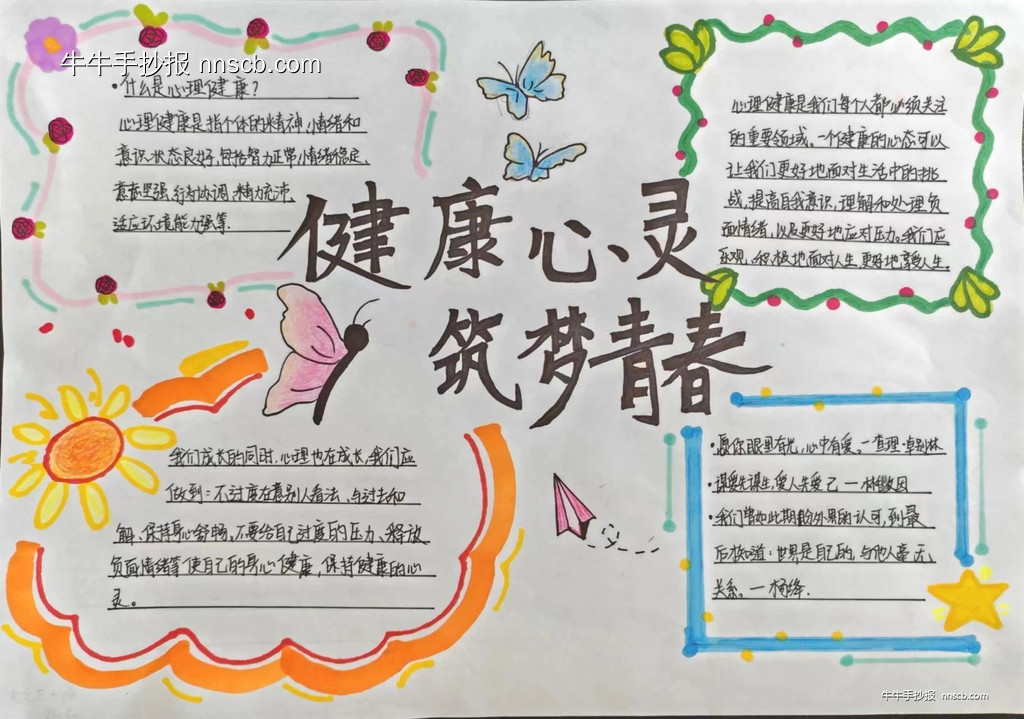 牛牛手抄报 nnscb.com
·什么是心理健康?
心理健康是指个体的精神、情绪和
意识状态良好,包括智力正常,情绪稳定、
意志坚强,行为协调、精力充沛、
适应环境能力强等.
心理健康是我们每个人都必须关注
的重要领域。一个健康的心态可以
让我们更好地面对生活中的挑
战,提高自我意识,理解和处理负
面情绪,以及更好地应对压力。我们应
乐观、积极地面对人生,更好地享受人生.
健康心灵
筑梦青春
我们成长的同时,心理也在成长,我们应
做到:不过度在意别人看法、与过去和
解、保持身心舒畅,不要给自己过度的压力、释放
负面情绪等使自己的身心健康,保持健康的心
灵。
·愿你眼里有光,心中有爱。一查理·卓别林
·谋要先谋生,爱人先爱己 一林徽因
·我们曾如此期盼外界的认可,到最
后才知道:世界是自己的,与他人毫无
关系。一杨绛.
牛牛手抄报 nnscb.com